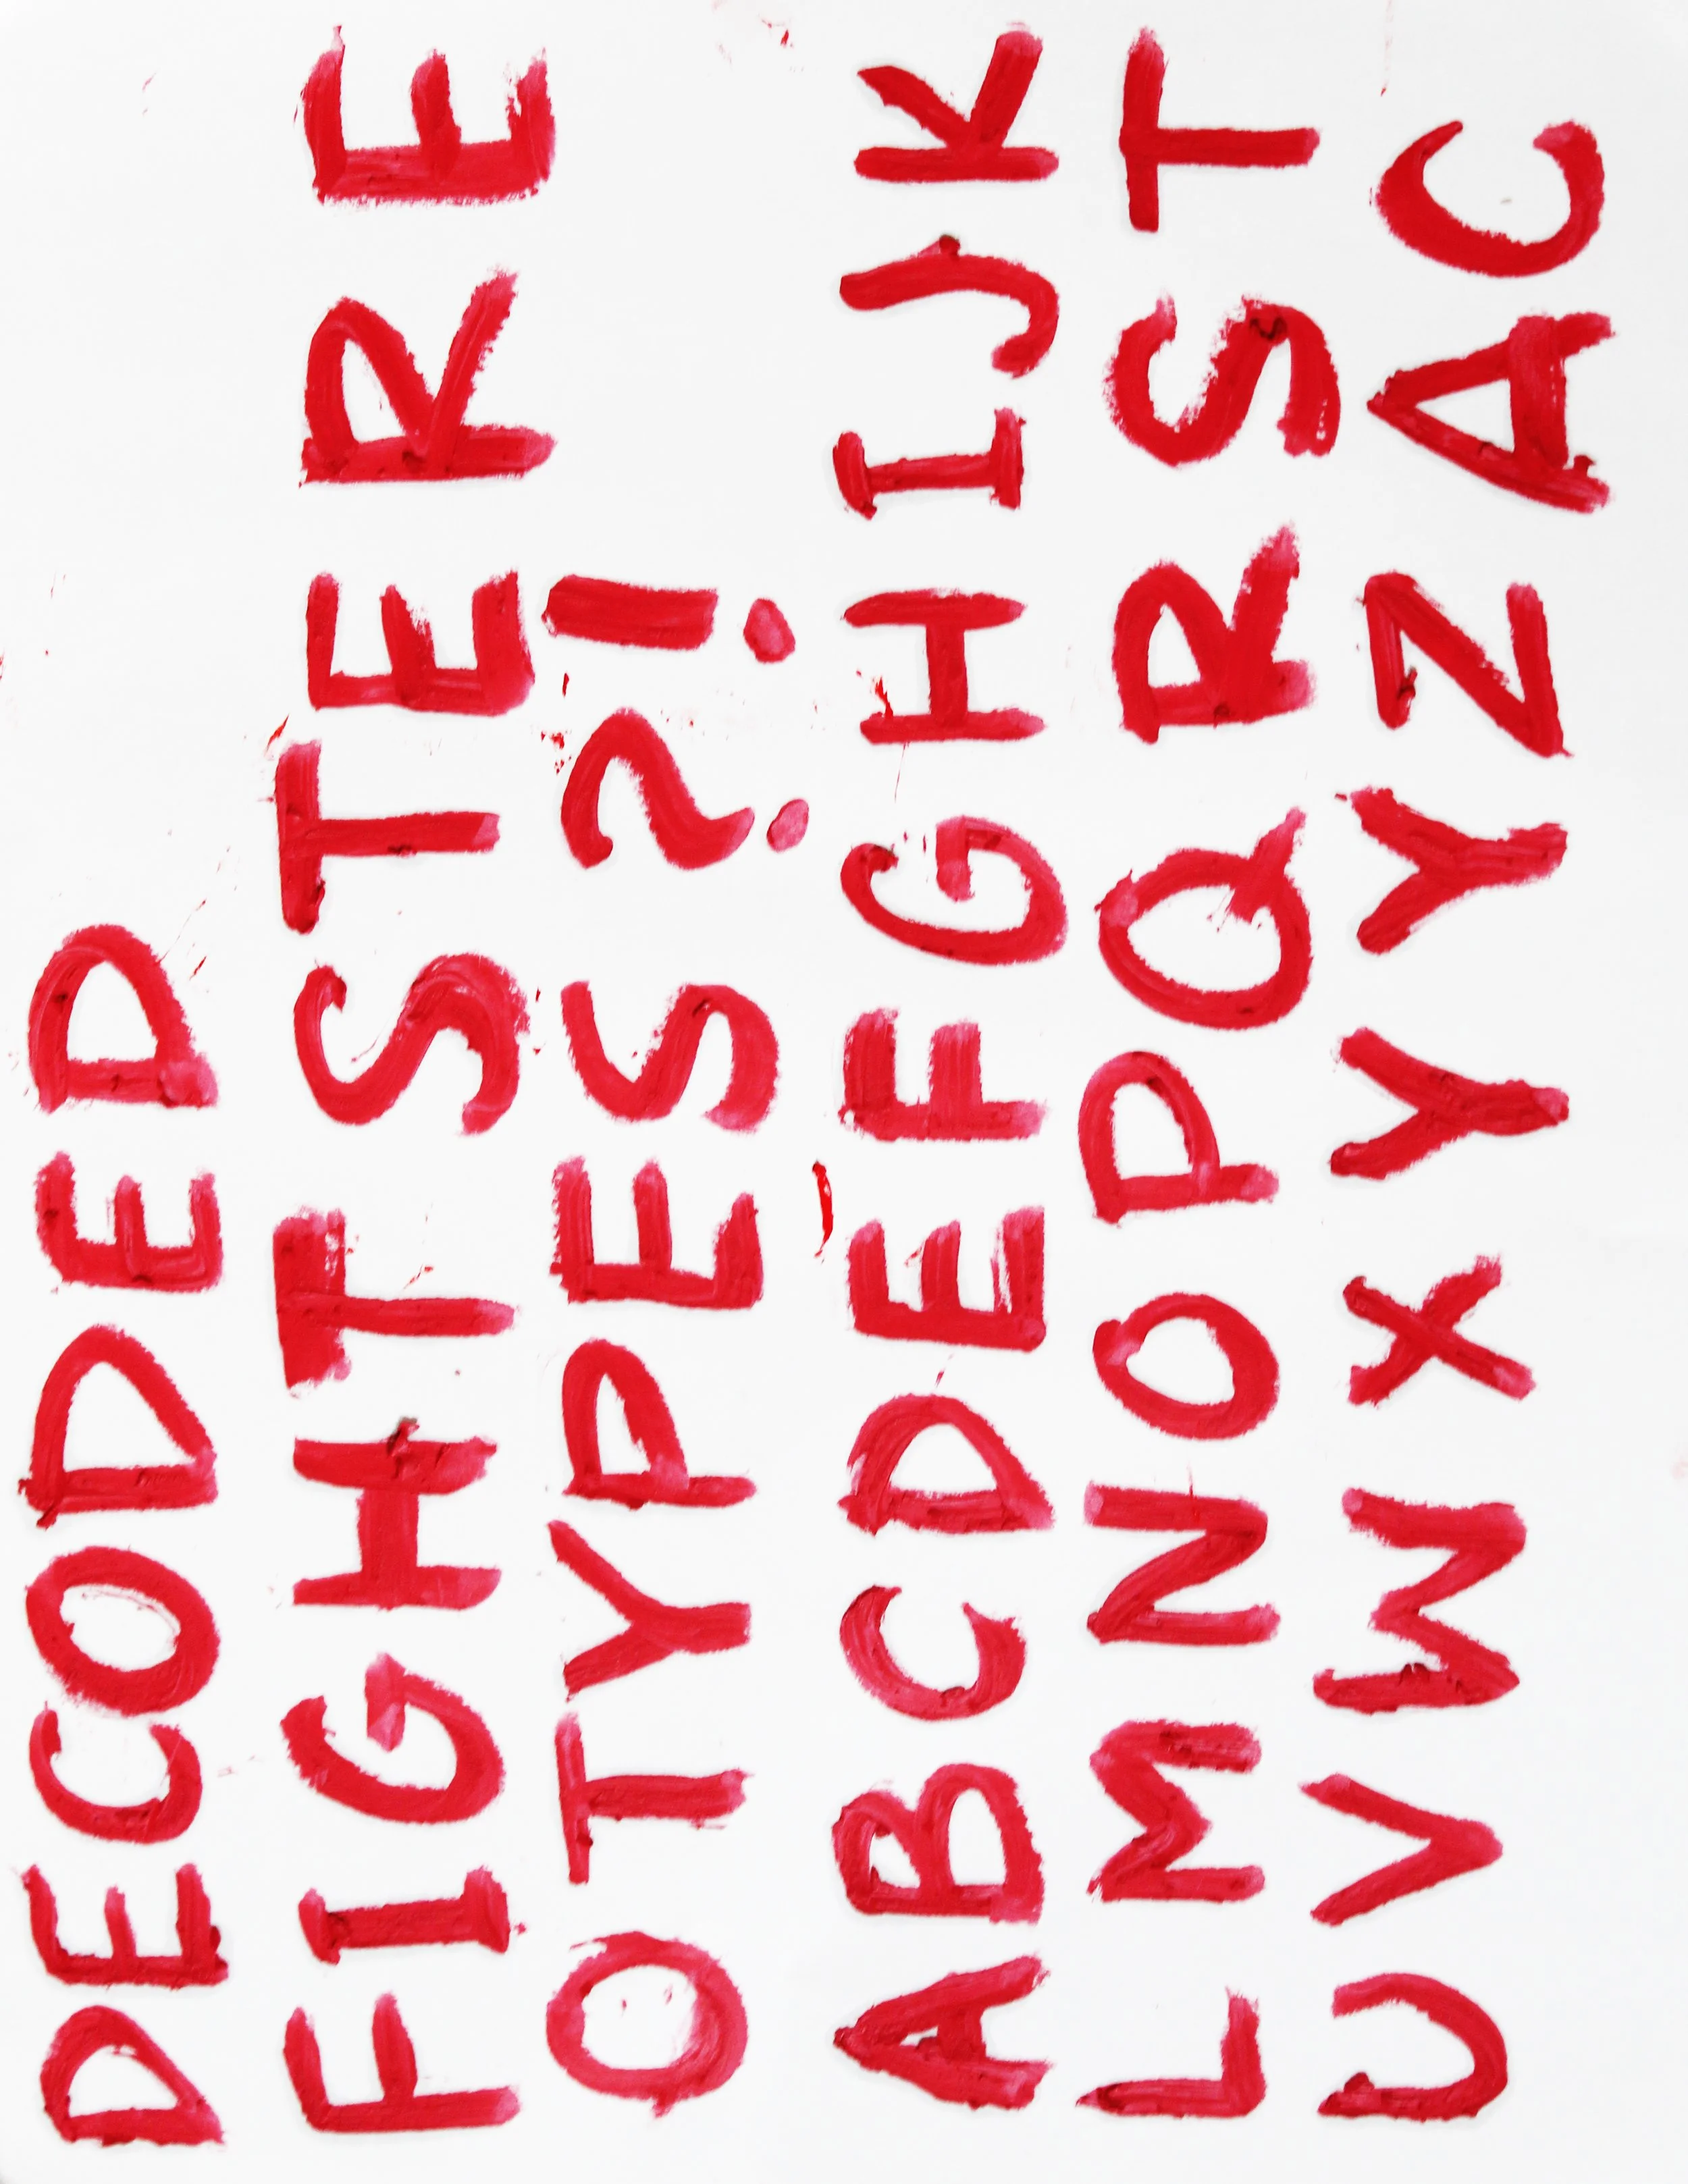 DECODED
FIGHT STERE
OTYPES?!
ABCDEFGHIJK
LMNOPQRST
UVWXYYZAC